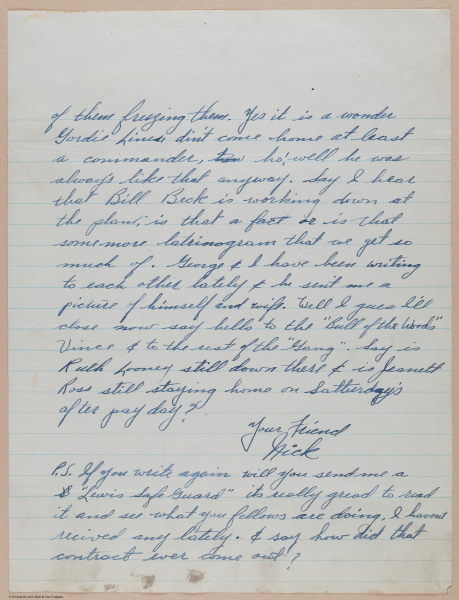 of them freezing them. Yes it is a wonder
Gordie Lines din't come home at least
a commander, ho! well he was
always like that anyway. Say I hear
that Bill Beck is working down at
the plant, is that a fact or is that
some more latrinogram that we get so
much of. George & I have been writing
to each other lately & he sent me a
picture of himself and wife. Well I guess I'll
close now say hello to the "Bull of the Woods"
Vince & to the rest of the "Gang". Say is
Ruth Looney still down there & is Jeanett
Ross still staying home on Satturday's
after pay day?
Your Friend
Nick
P.S. If you write again will you send me a
"Lewis Safe Guard" its really great to read
it and see what you fellows are doing. I havent
recived any lately. & say how did that
contract ever come out?